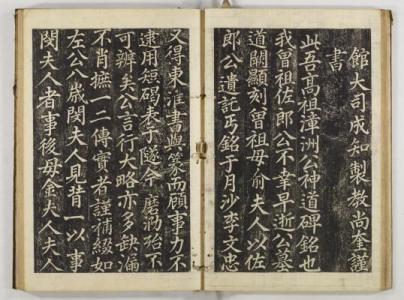 館大司成知製教尚奎謹
書
此吾高祖漳洲公神道碑銘也
我曾祖佐郎公不幸早逝公墓
道闕顯刻曾祖母俞夫人以佐
郎公遺託丐銘于月沙李文忠
又得東淮書與篆而顧事力不
逮用短碣表于隧今磨泐殆不
可辨矣公言行大略亦多缺漏
不肖摭一二傳實者謹補綴如
左公八歲閔夫人見背一以事
閔夫人者事後母金夫人夫人